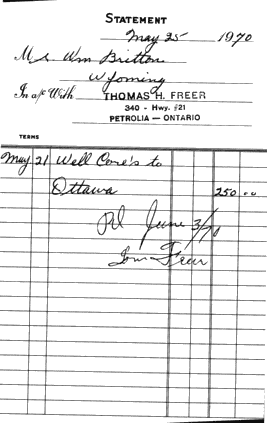 STATEMENT
May 25 1970
Mr Wm Britton
Wyoming
In a/c With THOMAS H. FREER
340 - Hwy. #21
PETROLIA — ONTARIO
TERMS
May 21 Well Core's to
Ottawa 250.00
Pd June 3/70
Tom Freer